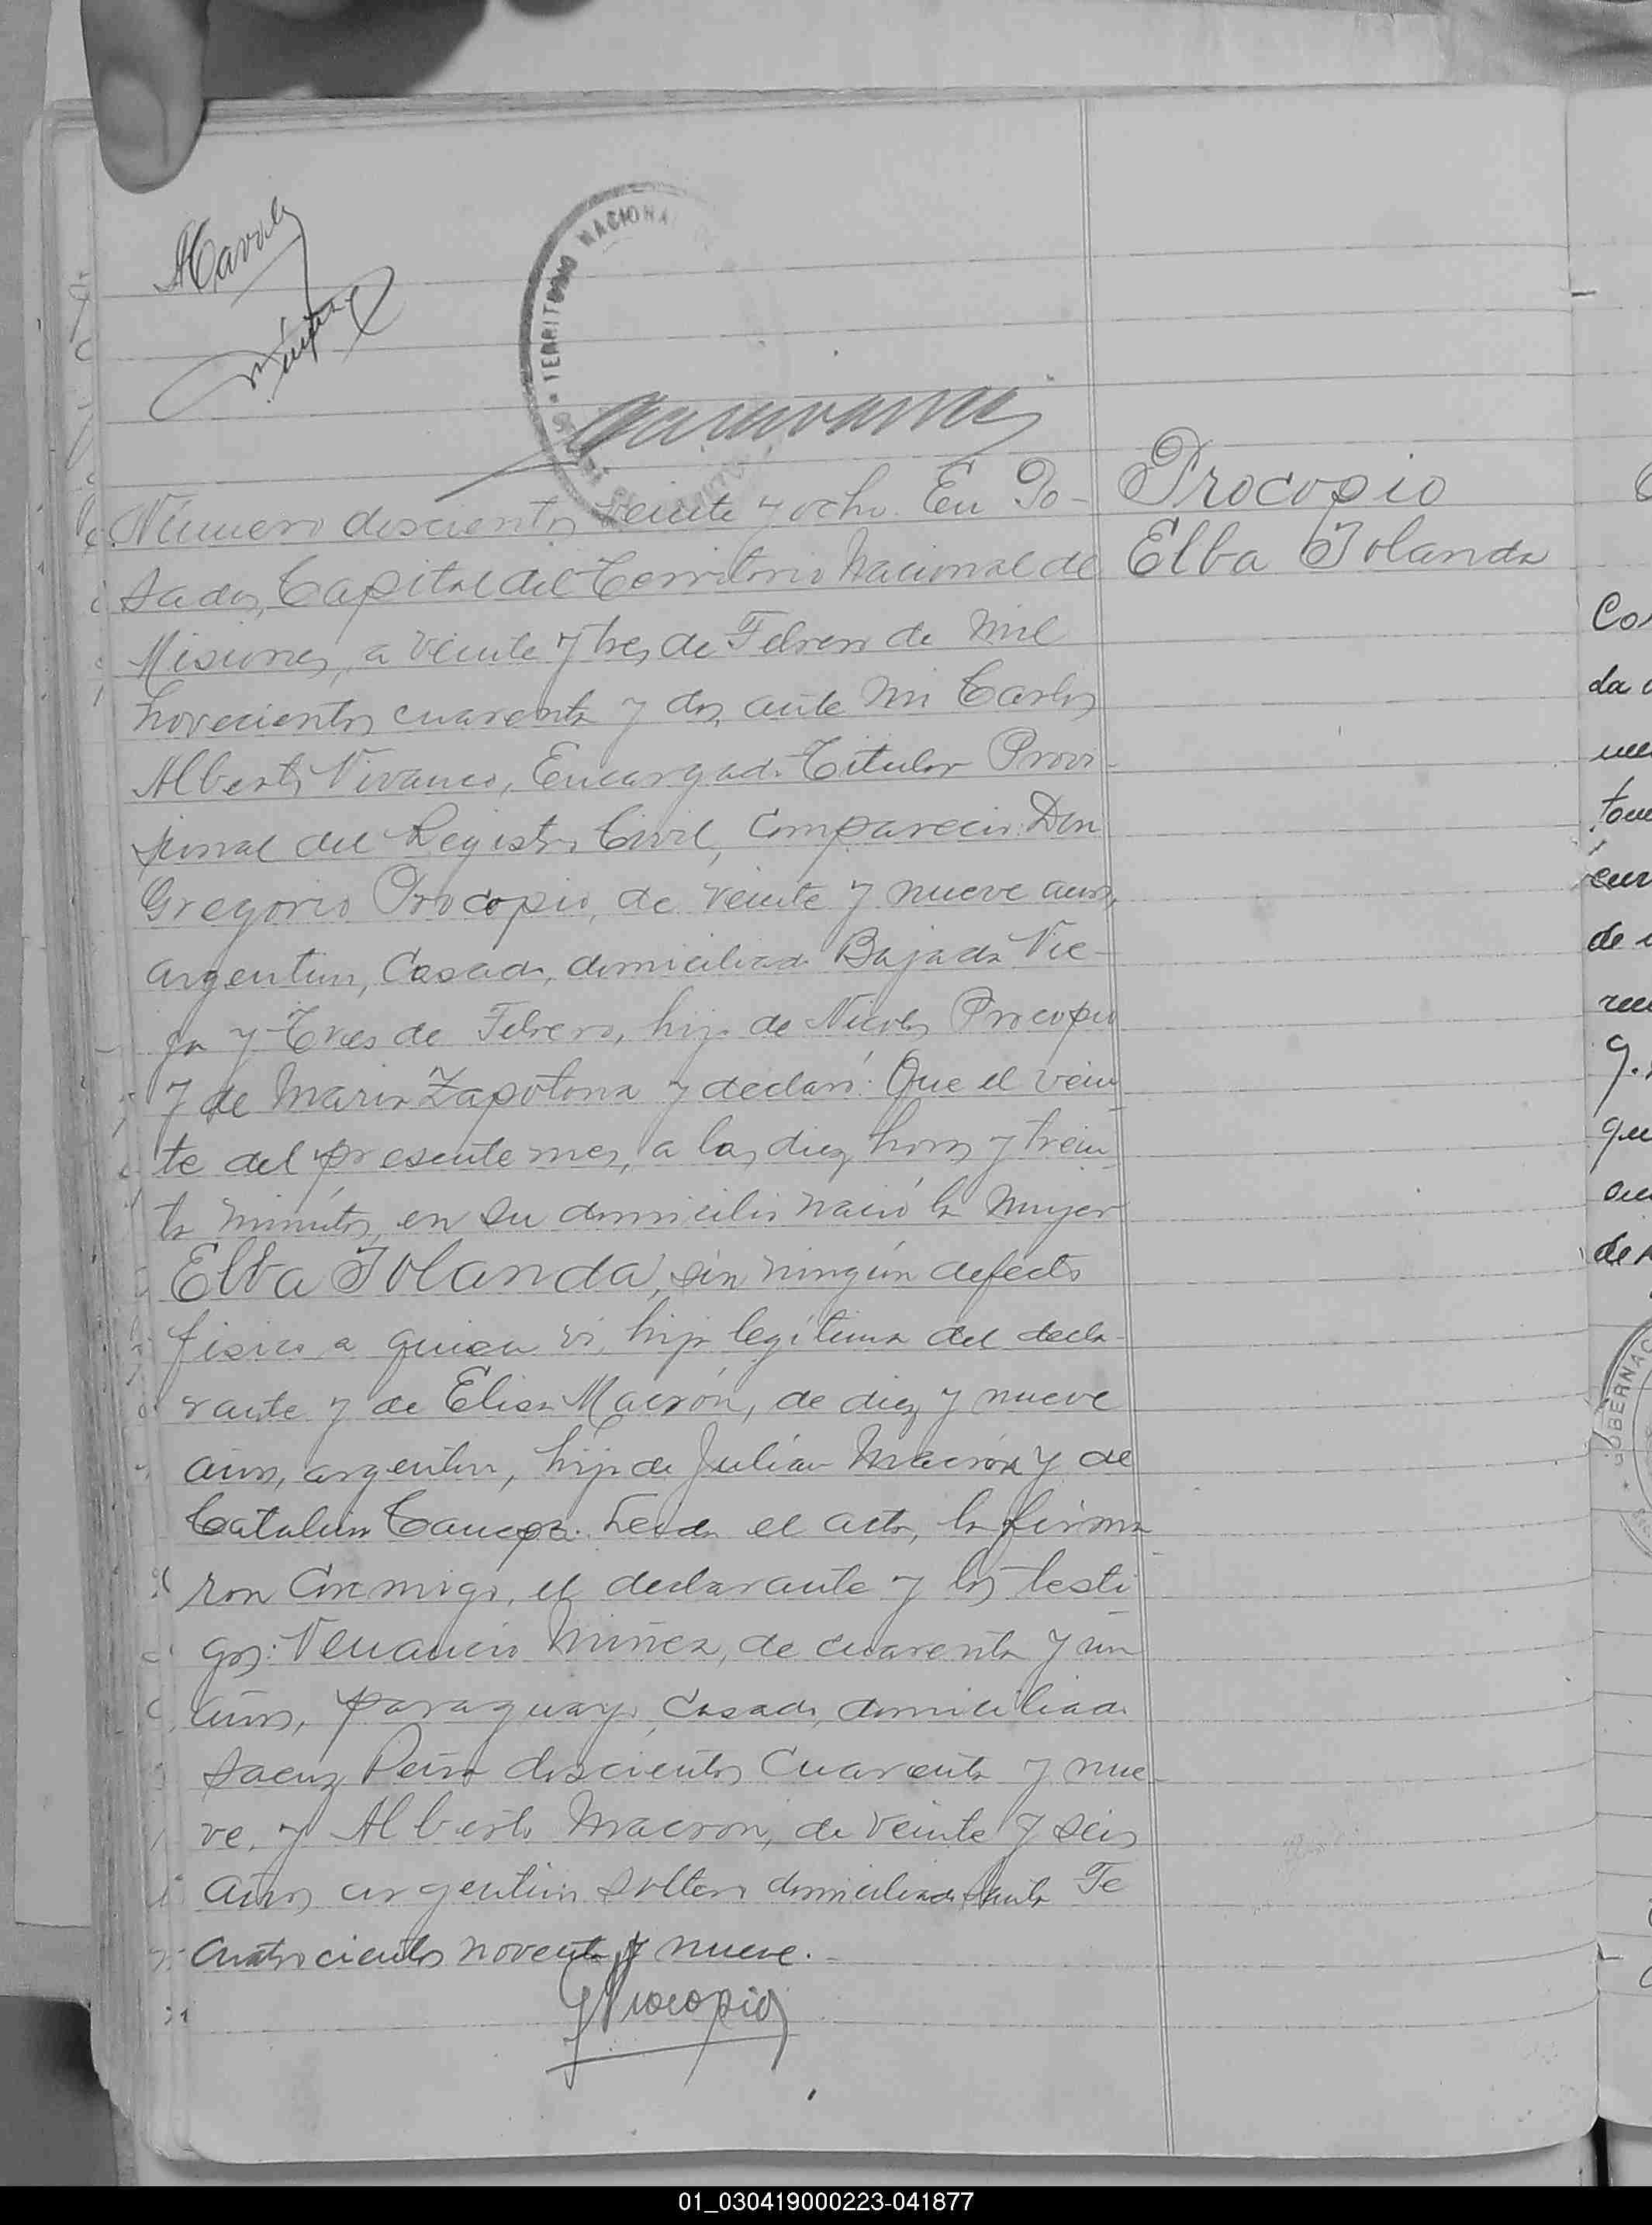 TERRITORIO NACIONAL
Número doscientos veinte y ocho. En Po-
sadas, Capital del Territorio Nacional de
Misiones, a veinte y tres de Febrero de mil
novecientos cuarenta y dos, ante mi Carlos
Alberto Vivanco, Encargado Titular Provi-
sional del Registro Civil, compareció: Don
Gregorio Procopio, de veinte y nueve años,
argentino, casado, domiciliado Bajada Vie-
ja y Tres de Febrero, hijo de Nicolás Procopio
y de Maria Zapotona y declaró: Que el vein
te del presente mes, a las diez horas y trein
ta minutos, en su domicilio nació la mujer
Elba Iolanda, sin ningún defecto
fisico a quien vi, hija legítima del decla-
rante y de Elisa Macrón, de diez y nueve
años, argentina, hija de Julián Macrón y de
Catalina. Leida el acta, la firma
ron conmigo, el declarante y los testi
gos: Venancio Núñez, de cuarenta y un
años, paraguayo, casado, domiciliado
Saenz Peña doscientos cuarenta y nue-
ve, y Alberto Macrón, de veinte y seis
años argentino soltero domiciliado Santa Fe
cuatrocientos noventa y nueve.
GProcopio
Procopio
Elba Iolanda
01_030419000223-041877